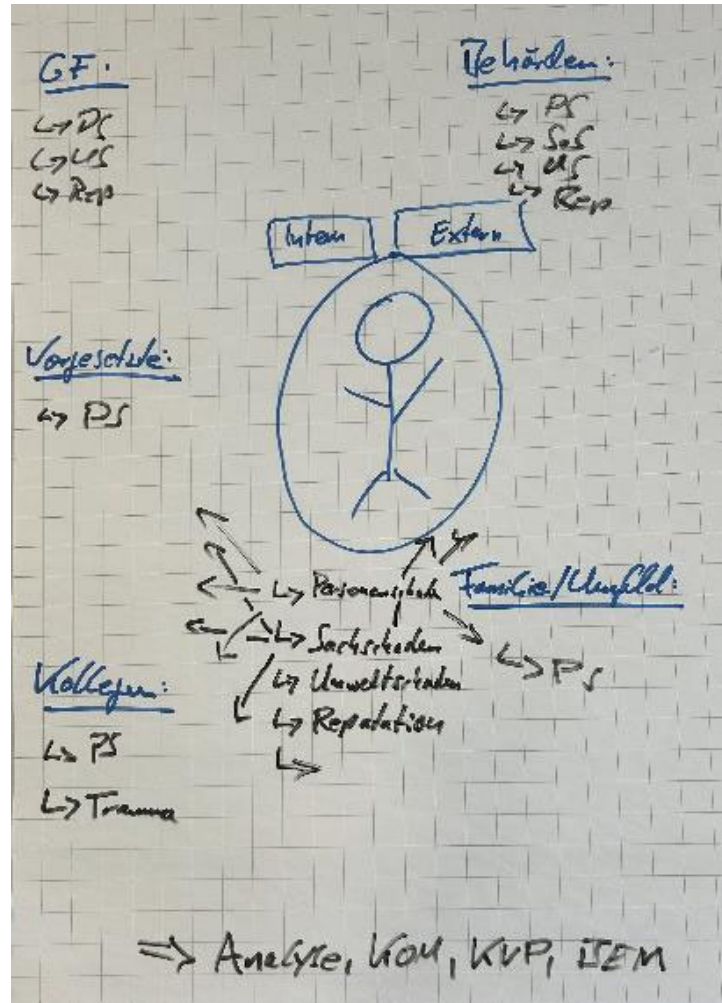 GF:
↳ PS
↳ US
↳ Rep
Behörden:
↳ PS
↳ SoS
↳ US
↳ Rep
Intern
Extern
Vorgesetzte:
↳ PS
↳ Personenschaden
↳ Sachschaden
↳ Umweltschaden
↳ Reputation
↳
Familie/Umfeld:
↳ PS
Kollegen:
↳ PS
↳ Trauma
⇒ Analyse, KOM, KVP, BEM